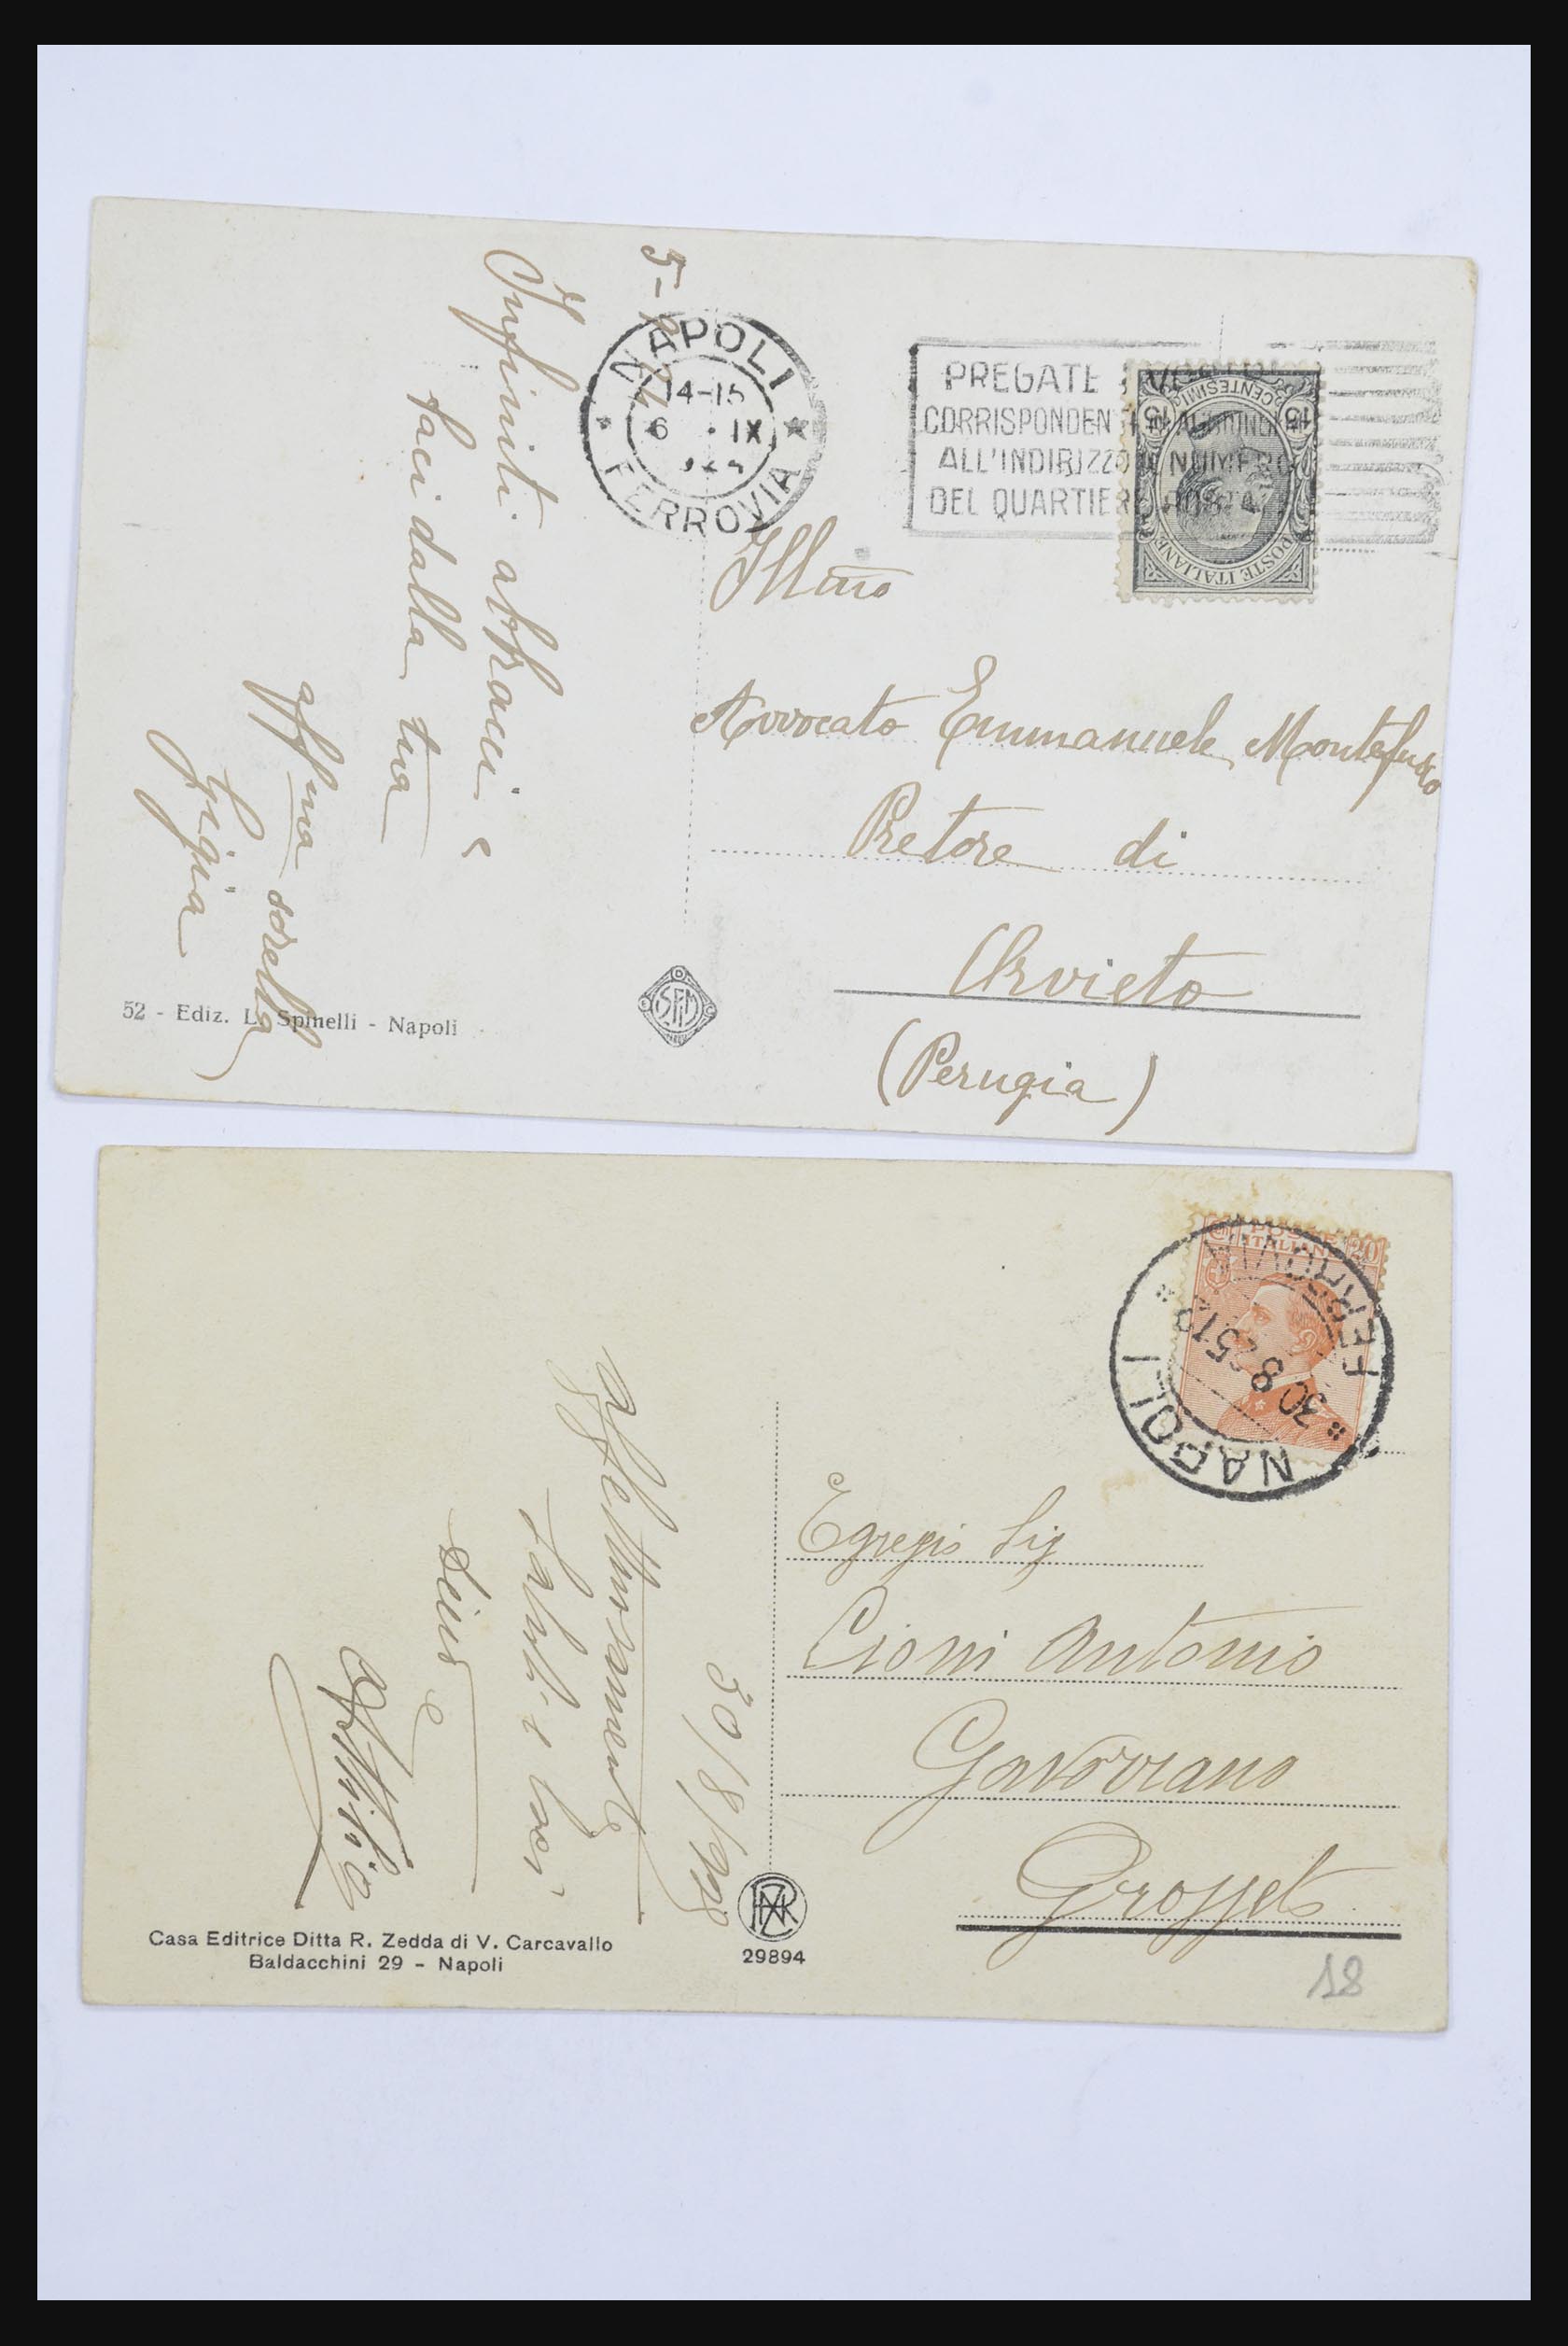 NAPOLI
14-15
6 · IX
FERROVIA
PREGATE I VOSTRI
CORRISPONDENTI
ALL'INDIRIZZO IL NUMERO
DEL QUARTIERE POSTALE
CENTESIMI
15 15
POSTE ITALIANE
Infiniti abbracci e
baci dalla tua
aff.ma sorella
Gigia
Ill.mo
Avvocato Emmanuele Montefusco
Pretore di
Orvieto
(Perugia)
52 - Ediz. L. Spinelli - Napoli
POSTE
ITALIANE
20
FERROVIA
30 8 25 18
NAPOLI
30/8/925
Affettuosamente
Saluti e baci
Attilio
Egregio Sig
Cioni Antonio
Gavorrano
Grosseto
Casa Editrice Ditta R. Zedda di V. Carcavallo
Baldacchini 29 - Napoli
29894
18